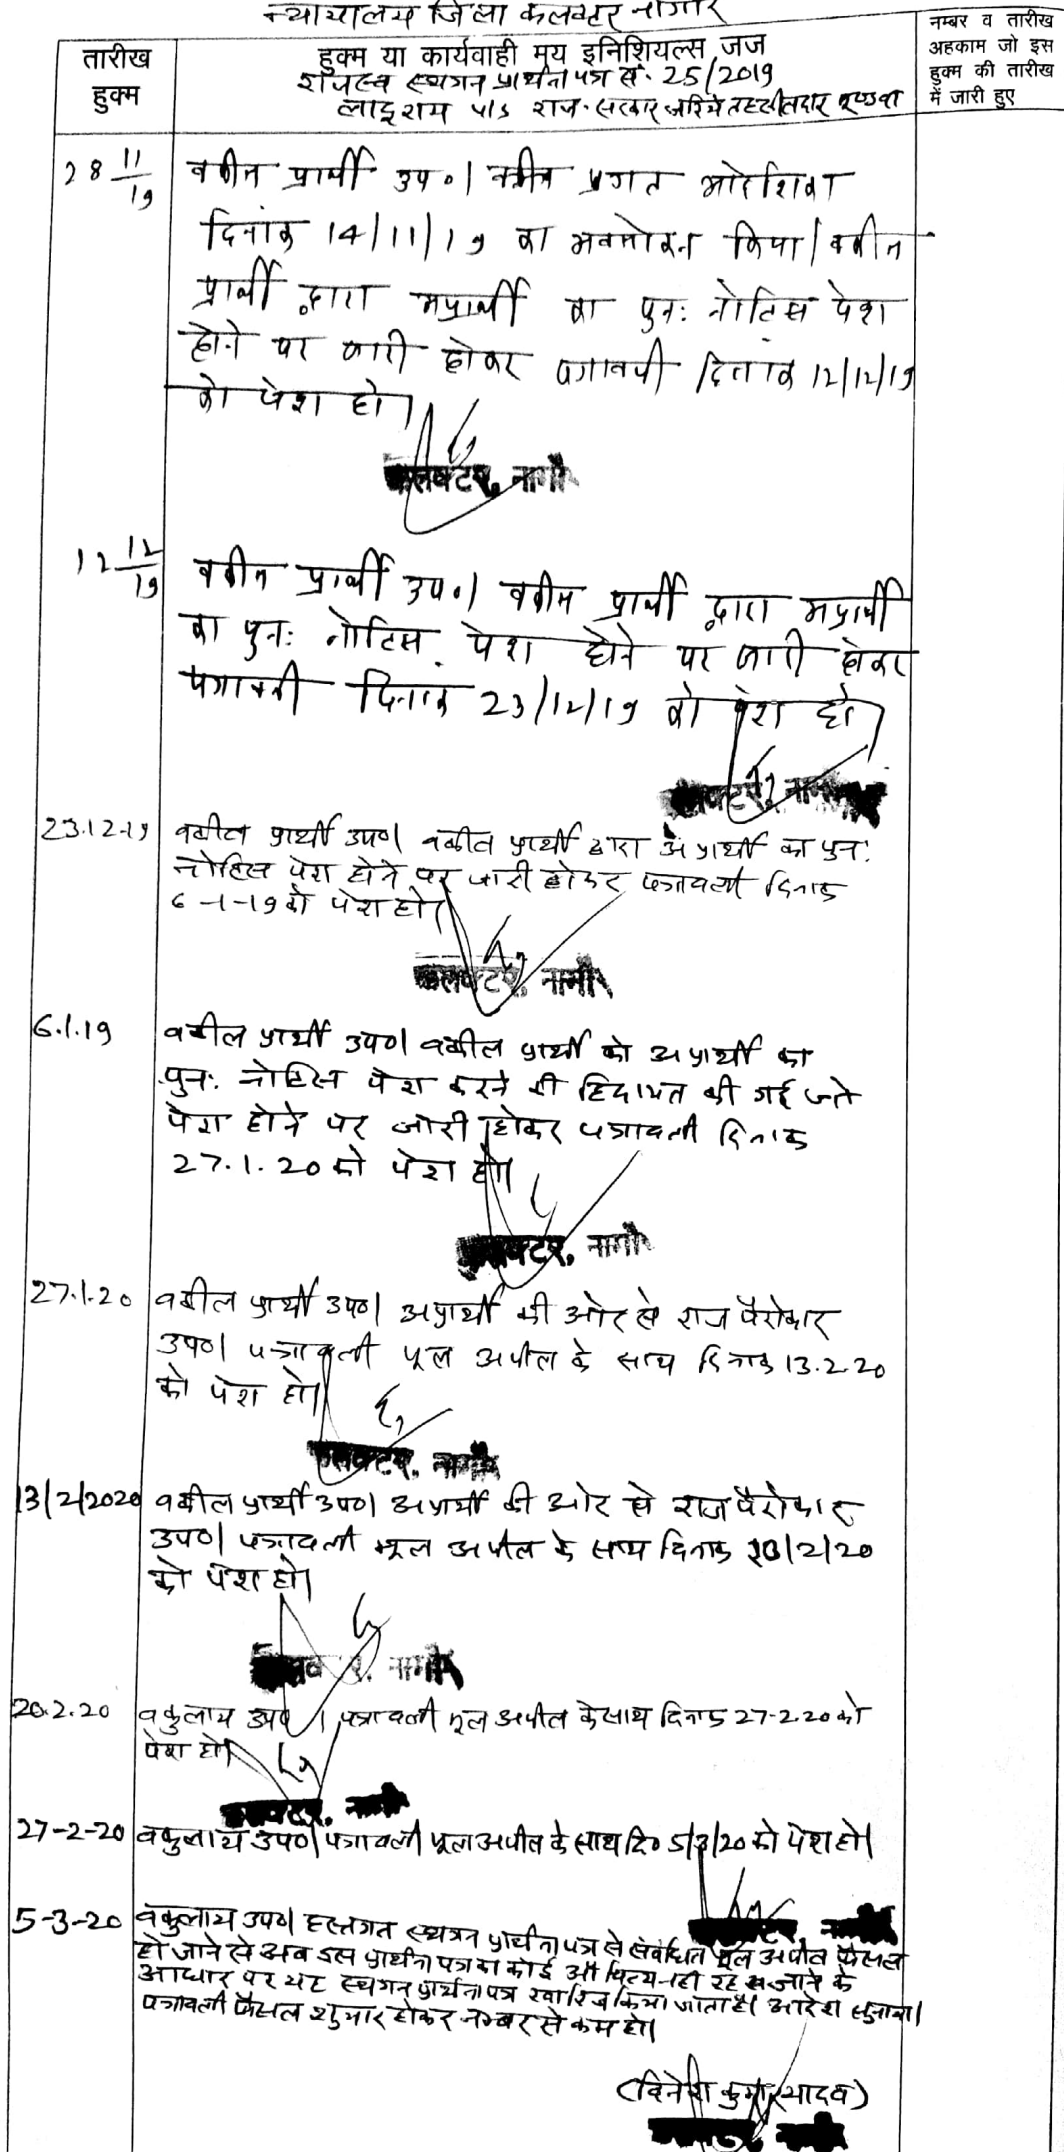 न्यायालय जिला कलक्टर नागौर
तारीख
हुक्म
हुक्म या कार्यवाही मय इनिशियल्स जज
नम्बर व तारीख
अहकाम जो इस
हुक्म की तारीख
में जारी हुए
राजस्व स्थगन प्रार्थना पत्र सं. 25/2019
लादूराम v/s राज. सरकार जरिये तहसीलदार मूण्डवा
28 11/19
वकील प्रार्थी उप०। वकील प्रगत आदेशिका
दिनांक 14/11/19 का अवलोकन किया। वकील
प्रार्थी द्वारा अप्रार्थी का पुनः नोटिस पेश
होने पर जारी होकर पत्रावली दिनांक 12/12/19
को पेश हो।
कलक्टर, नागौर
12 12/19
वकील प्रार्थी उप०। वकील प्रार्थी द्वारा अप्रार्थी
का पुनः नोटिस पेश होने पर जारी होकर
पत्रावली दिनांक 23/12/19 को पेश हो।
कलक्टर, नागौर
23.12-19
वकील प्रार्थी उप०। वकील प्रार्थी द्वारा अप्रार्थी का पुनः
नोटिस पेश होने पर जारी होकर पत्रावली दिनांक
6-1-19 को पेश हो।
कलक्टर, नागौर
6.1.19
वकील प्रार्थी उप०। वकील प्रार्थी को अप्रार्थी का
पुनः नोटिस पेश करने की हिदायत की गई
पेश होने पर जारी होकर पत्रावली दिनांक
27.1.20 को पेश हो।
कलक्टर, नागौर
27.1.20
वकील प्रार्थी उप०। अप्रार्थी की ओर से राज पैरोकार
उप०। पत्रावली मूल अपील के साथ दिनांक 13.2.20
को पेश हो।
कलक्टर, नागौर
13/2/2020
वकील प्रार्थी उप०। अप्रार्थी की ओर से राज पैरोकार
उप०। पत्रावली मूल अपील के साथ दिनांक 20/2/20
को पेश हो।
कलक्टर, नागौर
20.2.20
वकुलाय उप०। पत्रावली मूल अपील के साथ दिनांक 27-2.20 को
पेश हो।
कलक्टर, नागौर
27-2-20
वकुलाय उप०। पत्रावली मूल अपील के साथ दि० 5/3/20 को पेश हो।
5-3-20
वकुलाय उप०। हस्तगत स्थगन प्रार्थना पत्र से संबंधित मूल अपील फैसल
हो जाने से अब इस प्रार्थना पत्र का कोई औचित्य नही रह जाने के
आधार पर यह स्थगन प्रार्थना पत्र खारिज किया जाता है। आदेश सुनाया।
पत्रावली फैसल शुमार होकर नम्बर से कम हो।
(दिनेश कुमार यादव)